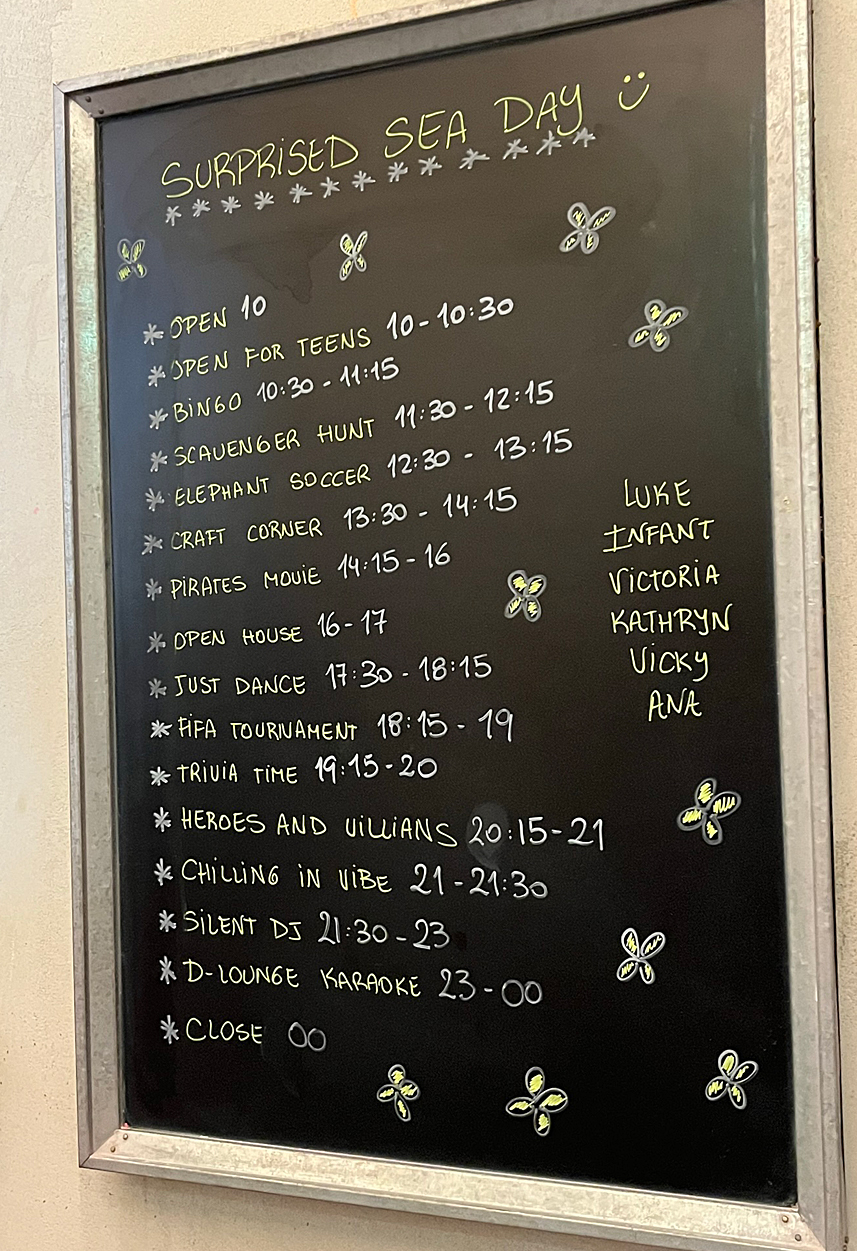 SURPRISED SEA DAY
* OPEN 10
* OPEN FOR TEENS 10-10:30
* BINGO 10:30-11:15
* SCAVENGER HUNT 11:30-12:15
* ELEPHANT SOCCER 12:30-13:15
* CRAFT CORNER 13:30-14:15
* PIRATES MOVIE 14:15-16
* OPEN HOUSE 16-17
* JUST DANCE 17:30-18:15
* FIFA TOURNAMENT 18:15-19
* TRIVIA TIME 19:15-20
* HEROES AND VILLIANS 20:15-21
* CHILLING IN VIBE 21-21:30
* SILENT DJ 21:30-23
* D-LOUNGE KARAOKE 23-00
* CLOSE 00
LUKE
INFANT
VICTORIA
KATHRYN
VICKY
ANA